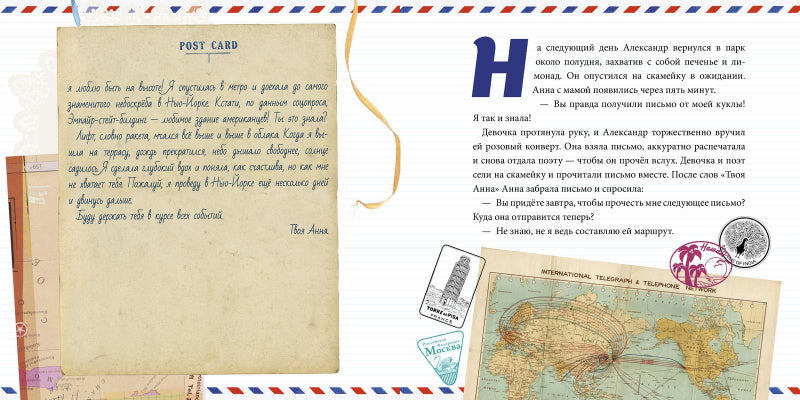 POST CARD
я люблю быть на высоте! Я спустилась в метро и доехала до самого
знаменитого небоскрёба в Нью-Йорке. Кстати, по данным соцопроса,
Эмпайр-стейт-билдинг — любимое здание американцев! Ты это знала?
Лифт, словно ракета, мчался всё выше и выше в облака. Когда я вы-
шла на террасу, дождь прекратился, небо дышало свободнее, солнце
садилось. Я сделала глубокий вдох и поняла, как счастлива, но как мне
не хватает тебя. Пожалуй, я проведу в Нью-Йорке ещё несколько дней
и двинусь дальше.
Буду держать тебя в курсе всех событий.
Твоя Анна.
На следующий день Александр вернулся в парк
около полудня, захватив с собой печенье и ли-
монад. Он опустился на скамейку в ожидании.
Анна с мамой появились через пять минут.
— Вы правда получили письмо от моей куклы!
Я так и знала!
Девочка протянула руку, и Александр торжественно вручил
ей розовый конверт. Она взяла письмо, аккуратно распечатала
и снова отдала поэту — чтобы он прочёл вслух. Девочка и поэт
сели на скамейку и прочитали письмо вместе. После слов «Твоя
Анна» Анна забрала письмо и спросила:
— Вы придёте завтра, чтобы прочесть мне следующее письмо?
Куда она отправится теперь?
— Не знаю, не я ведь составляю ей маршрут.
Hawaii
OF INDIA
TORRE DI PISA
FRANCE
Российская Федерация
Москва
INTERNATIONAL TELEGRAPH & TELEPHONE NETWORK